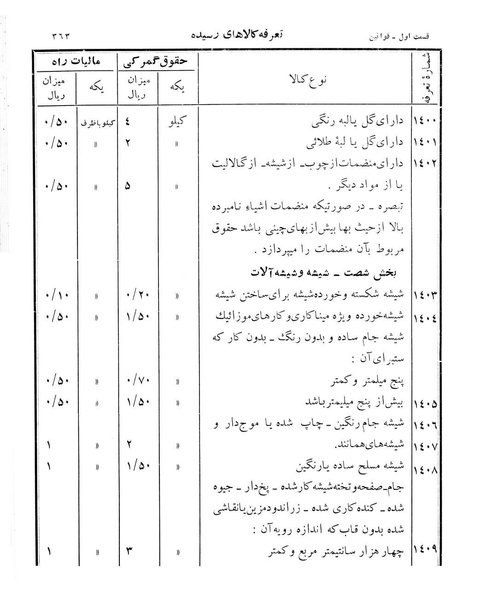 قسمت اول ـ قوانین تعرفه کالاهای رسیده ۳۶۳
شمارهٔ تعرفه نوع کالا حقوق گمرکی مالیات راه
یکه میزان ریال یکه میزان ریال
۱٤۰۰ دارای گل یا لبه رنگی کیلو ٤ کیلو با ظرف ۰/۵۰
۱٤۰۱ دارای گل یا لبهٔ طلائی » ۲ » ۰/۵۰
۱٤۰۲ دارای منضمات از چوب ـ از شیشه ـ از گالالیت
یا از مواد دیگر . » ۵ » ۰/۵۰
تبصره ـ در صورتیکه منضمات اشیاء نامبرده
بالا از حیث بها بیش از بهای چینی باشد حقوق
مربوط بآن منضمات را میپردازد .
بخش شصت ـ شیشه و شیشه آلات
۱٤۰۳ شیشه شکسته و خورده شیشه برای ساختن شیشه » ۰/۲۰ » ۰/۱۰
۱٤۰٤ شیشه خورده ویژه میناکاری و کارهای موزائیك » ۱/۵۰ » ۰/۵۰
شیشه جام ساده و بدون رنگ ـ بدون کار که
ستبرای آن :
پنج میلمتر و کمتر » ۰/۷۰ » ۰/۵۰
۱٤۰۵ بیش از پنج میلیمتر باشد » ۱/۵۰ » ۰/۵۰
۱٤۰۶ شیشه جام رنگین ـ چاپ شده یا موج دار و
۱٤۰۷ شیشه های همانند. » ۲ » ۱
۱٤۰۸ شیشه مسلح ساده یا رنگین » ۱/۵۰ » ۱
جام ـ صفحه و تخته شیشه کار شده ـ پخ دار ـ جیوه
شده ـ کنده کاری شده ـ زراندود مزین یا نقاشی
شده بدون قاب که اندازه رویه آن :
۱٤۰۹ چهار هزار سانتیمتر مربع و کمتر » ۳ » ۱